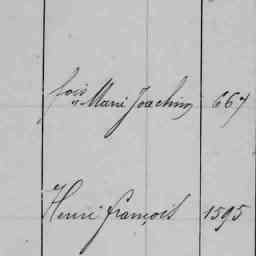 fois Marie Joachim 667
Henri françois 1595